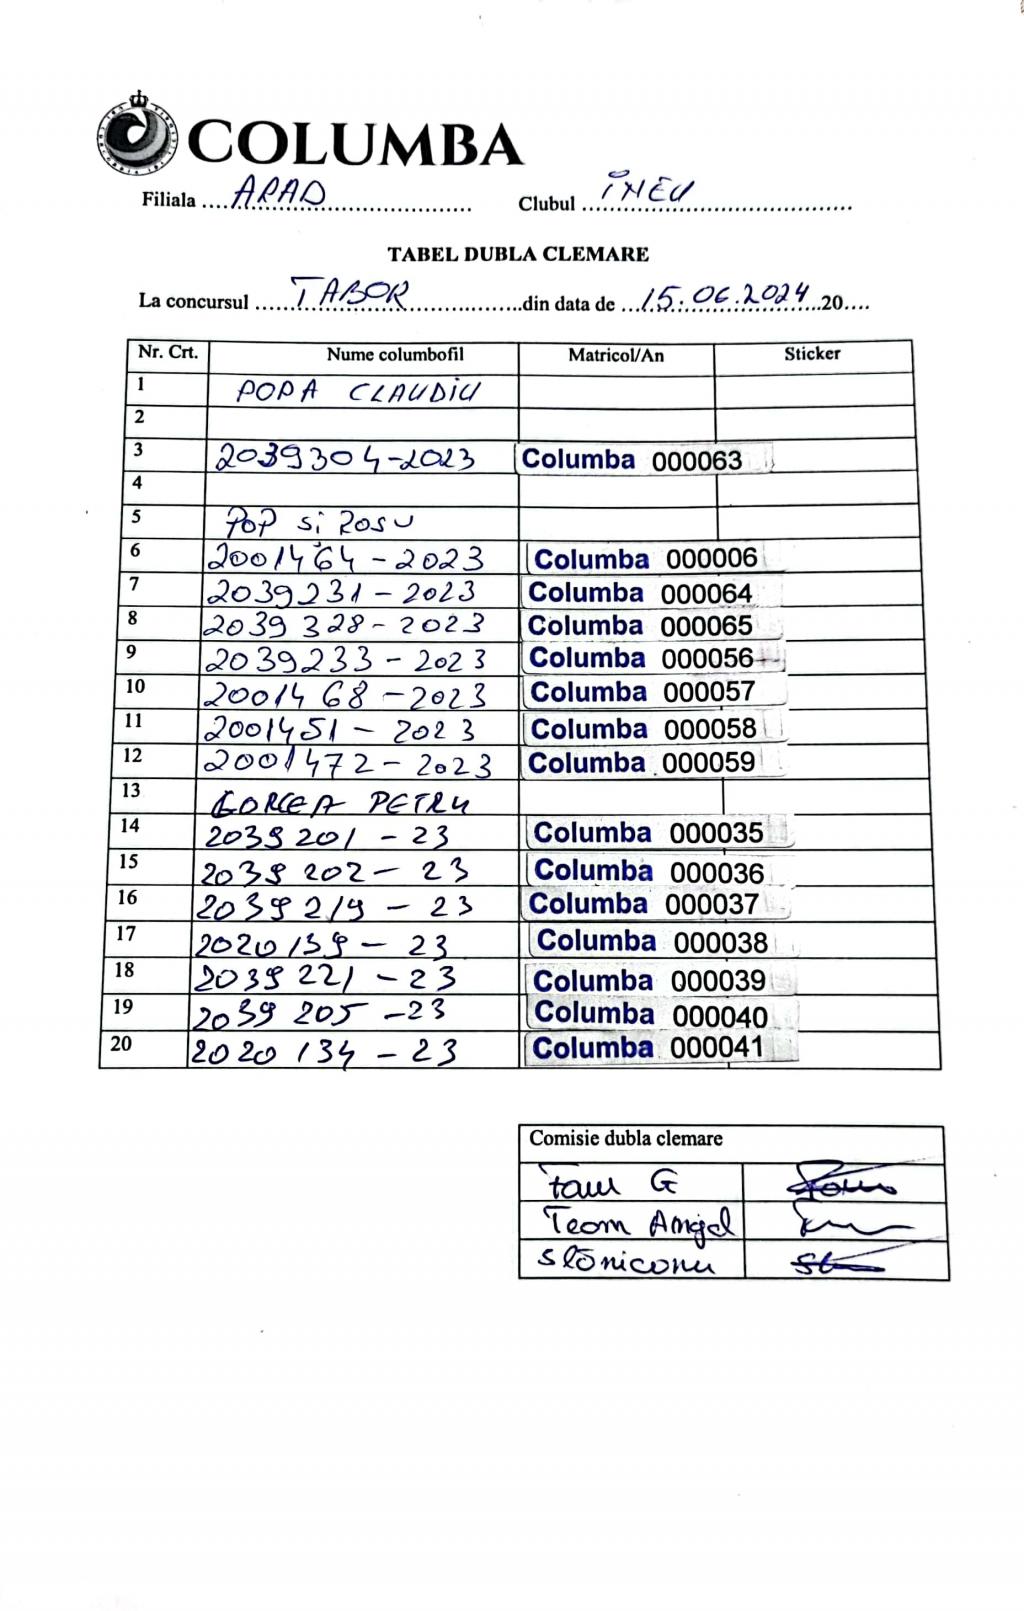 COLUMBA
Filiala .... ARAD .......................... Clubul ... INEU ..........................
TABEL DUBLA CLEMARE
La concursul ...... TABOR ....................din data de ... 15.06.2024 .20....
Nr. Crt. Nume columbofil Matricol/An Sticker
1 POPA CLAUDIU
2
3 2039304-2023 Columba 000063
4
5 POP si ROSU
6 2001464-2023 Columba 000006
7 2039231-2023 Columba 000064
8 2039328-2023 Columba 000065
9 2039233-2023 Columba 000056
10 2001468-2023 Columba 000057
11 2001451-2023 Columba 000058
12 2001472-2023 Columba 000059
13 GORCEA PETRU
14 2039201-23 Columba 000035
15 2039202-23 Columba 000036
16 2039219-23 Columba 000037
17 2020139-23 Columba 000038
18 2039221-23 Columba 000039
19 2039205-23 Columba 000040
20 2020134-23 Columba 000041
Comisie dubla clemare
G
Teom Angel